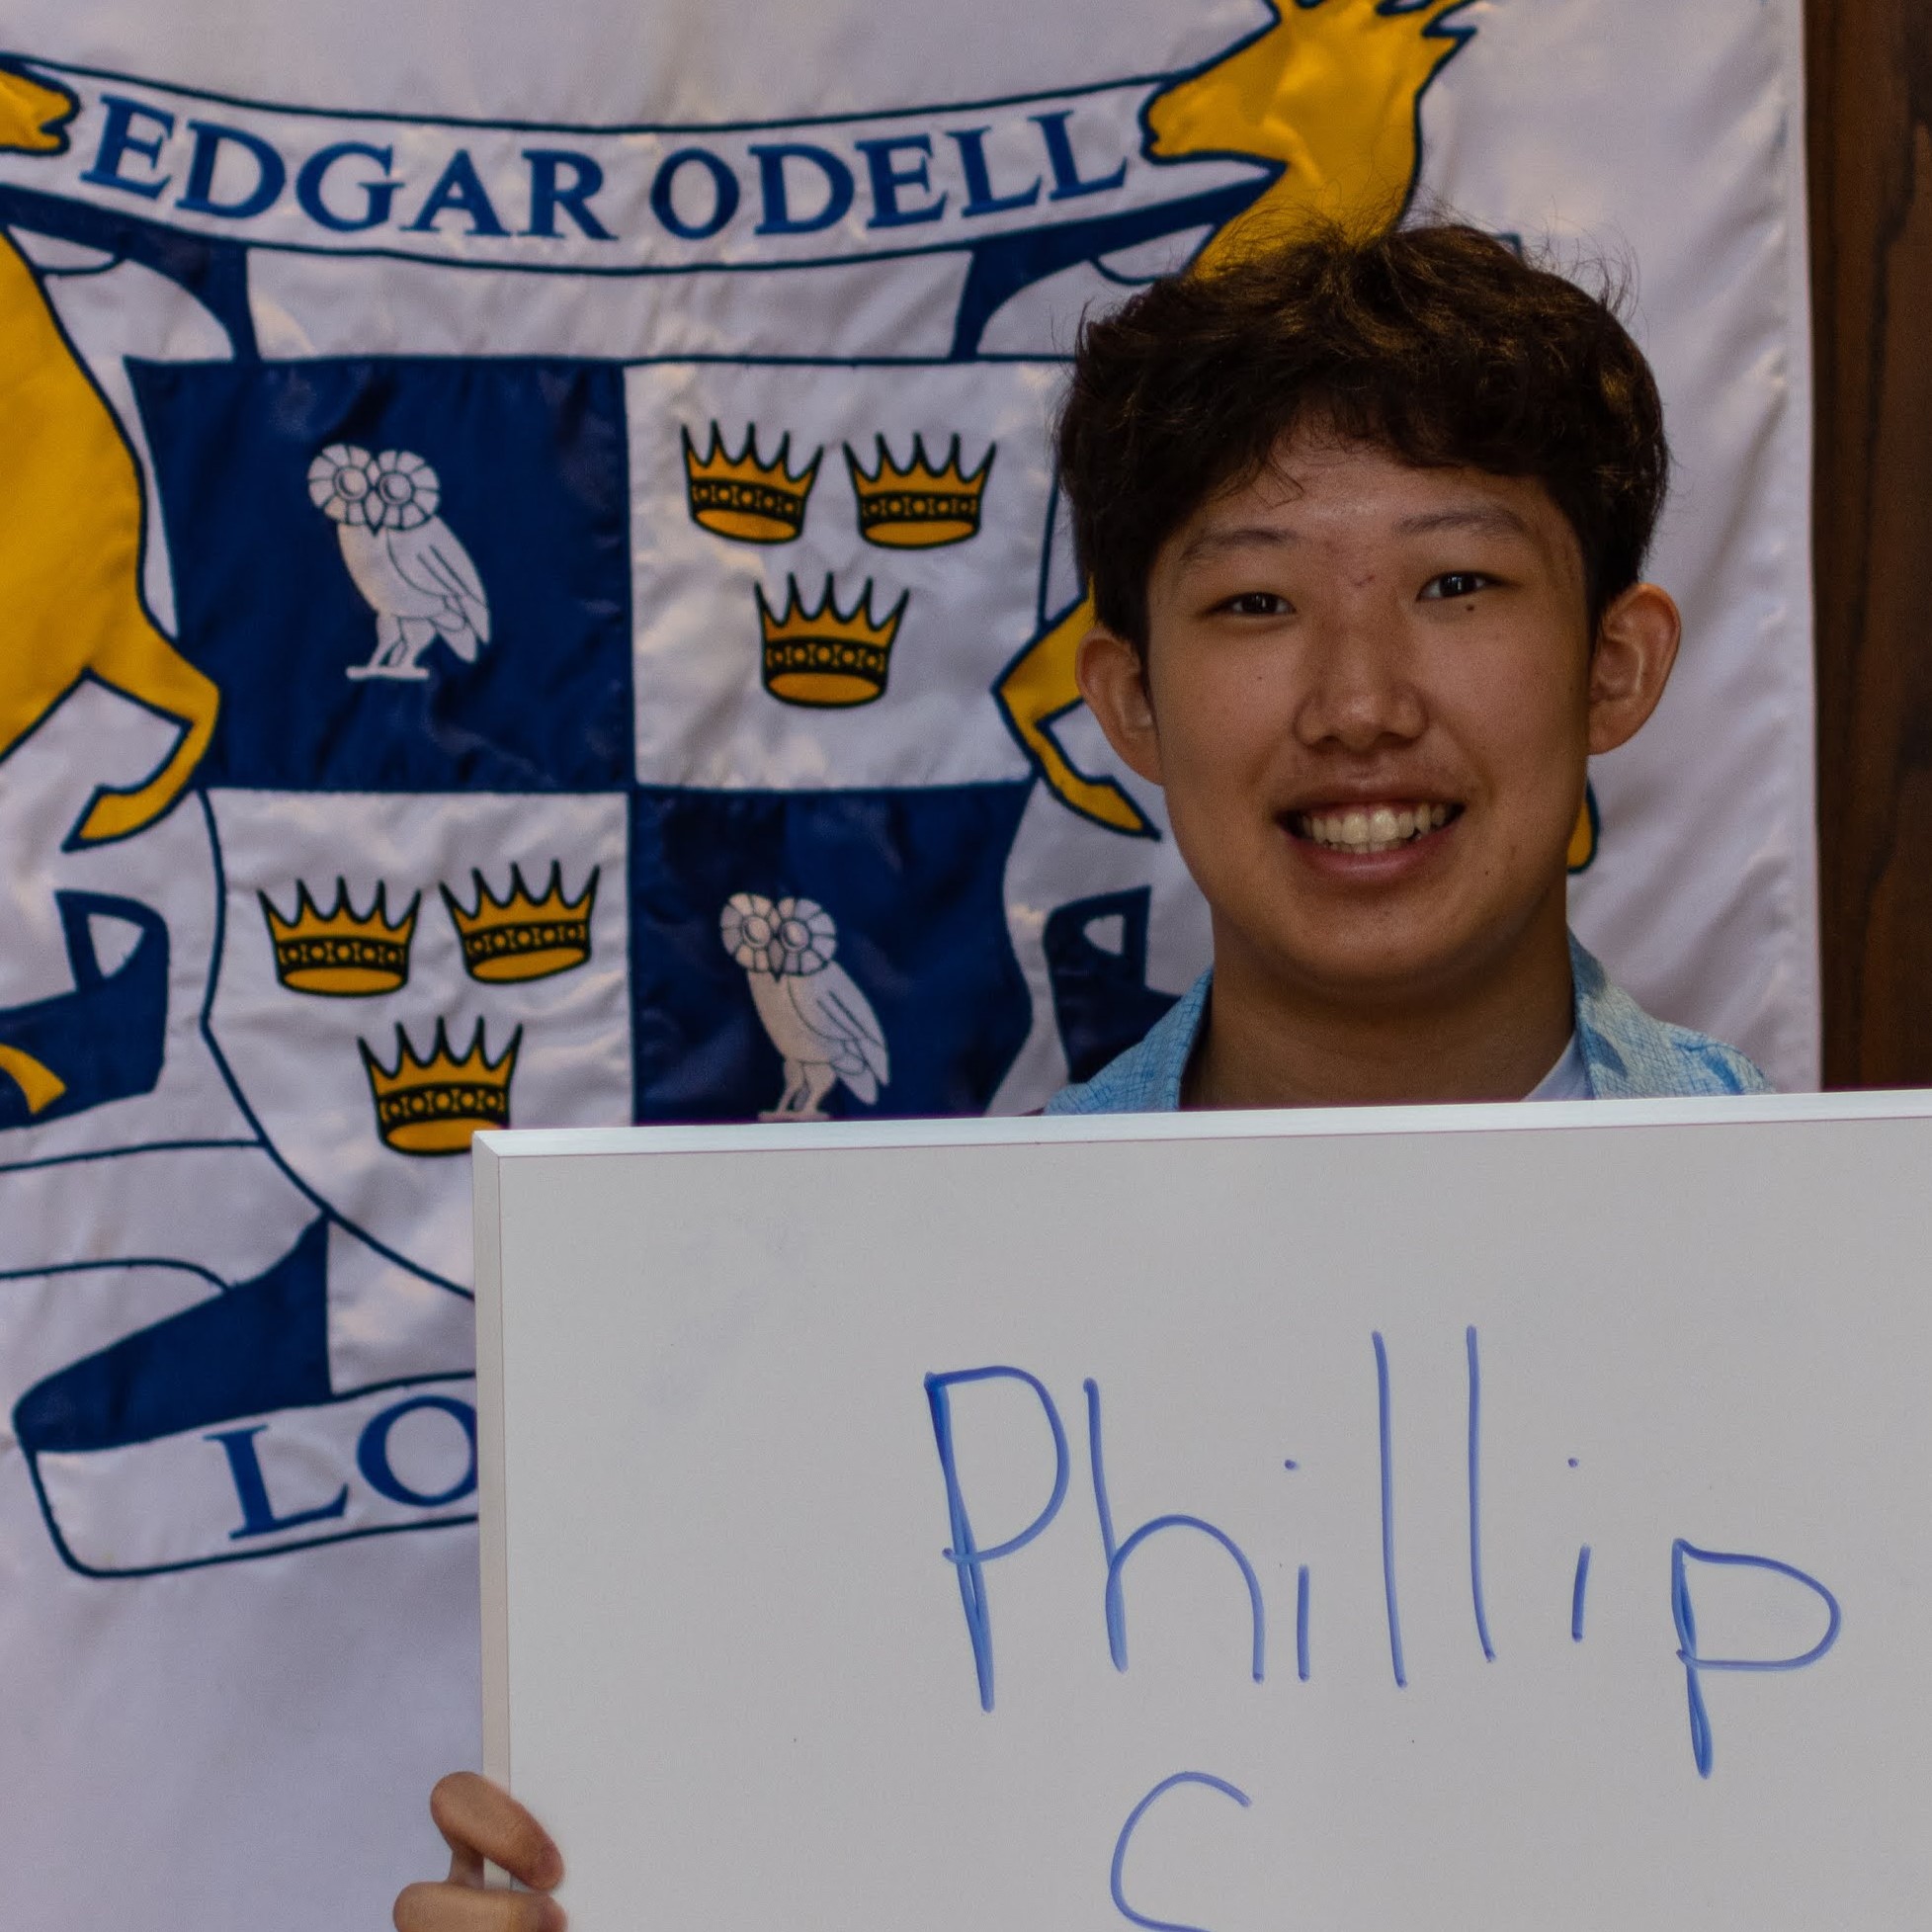 EDGAR ODELL
LO
Phillip